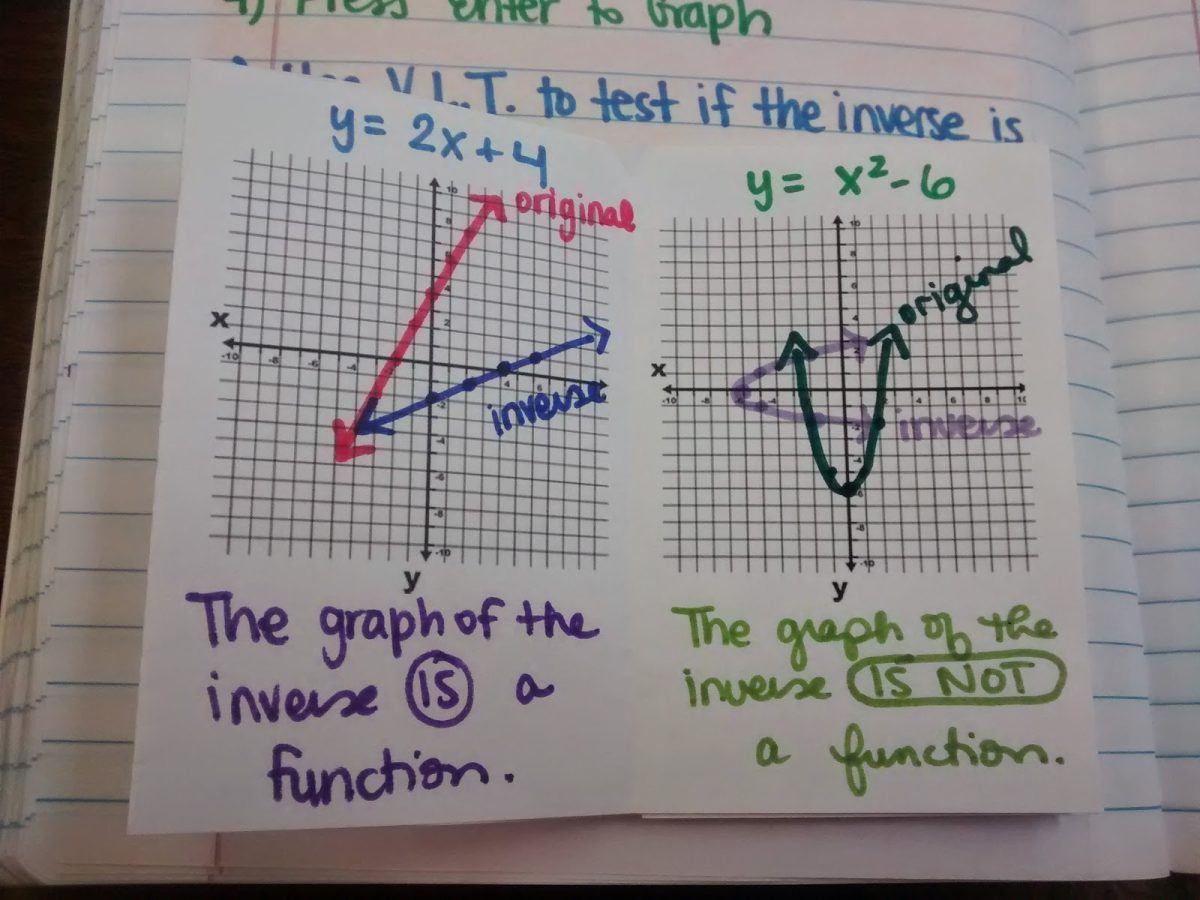 4) Press enter to Graph
V.L.T. to test if the inverse is
y= 2x+4
original
x
inverse
y
The graph of the
inverse IS a
function.
y= x²-6
original
x
inverse
y
The graph of the
inverse IS NOT
a function.